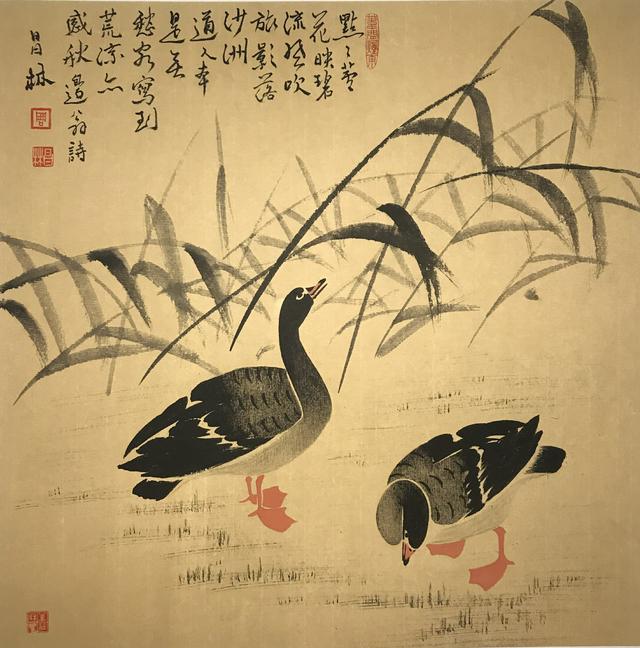 點〻蘆
花映碧
流風吹
旅影落
沙洲
道人本
是無
愁客寫到
荒涼亦
感秋邊翁詩
昌林